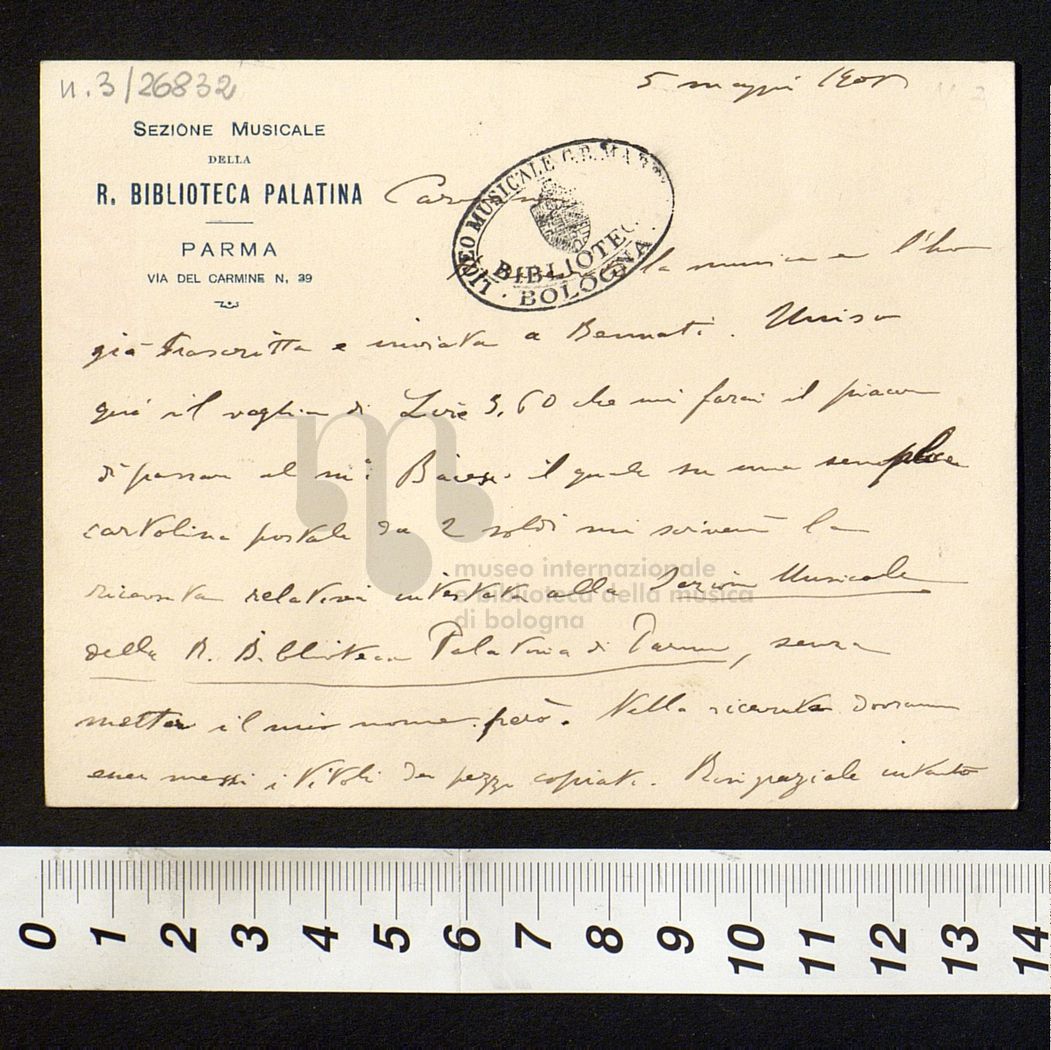 n. 3/26832
5 maggio
SEZIONE MUSICALE
DELLA
R. BIBLIOTECA PALATINA
PARMA
VIA DEL CARMINE N, 39
LICEO MUSICALE G.B. MART
BIBLIOTEC
BOLOGNA
la musica l'ho
già trascritta e inviata a Bennati. Unisco
qui il vaglia di Lire 3,60 che mi farai il piacere
di passare al il quale su una semplice
cartolina postale da 2 soldi mi scriverà la
ricevuta relativa intestata alla Sezione Musicale
della R. Biblioteca Palatina di Parma, senza
metter il mio nome però. Nella ricevuta dovranno
esser messi i titoli dei pezzi copiati. Ringraziale intanto
museo internazionale
e biblioteca della musica
di bologna
0 1 2 3 4 5 6 7 8 9 10 11 12 13 14